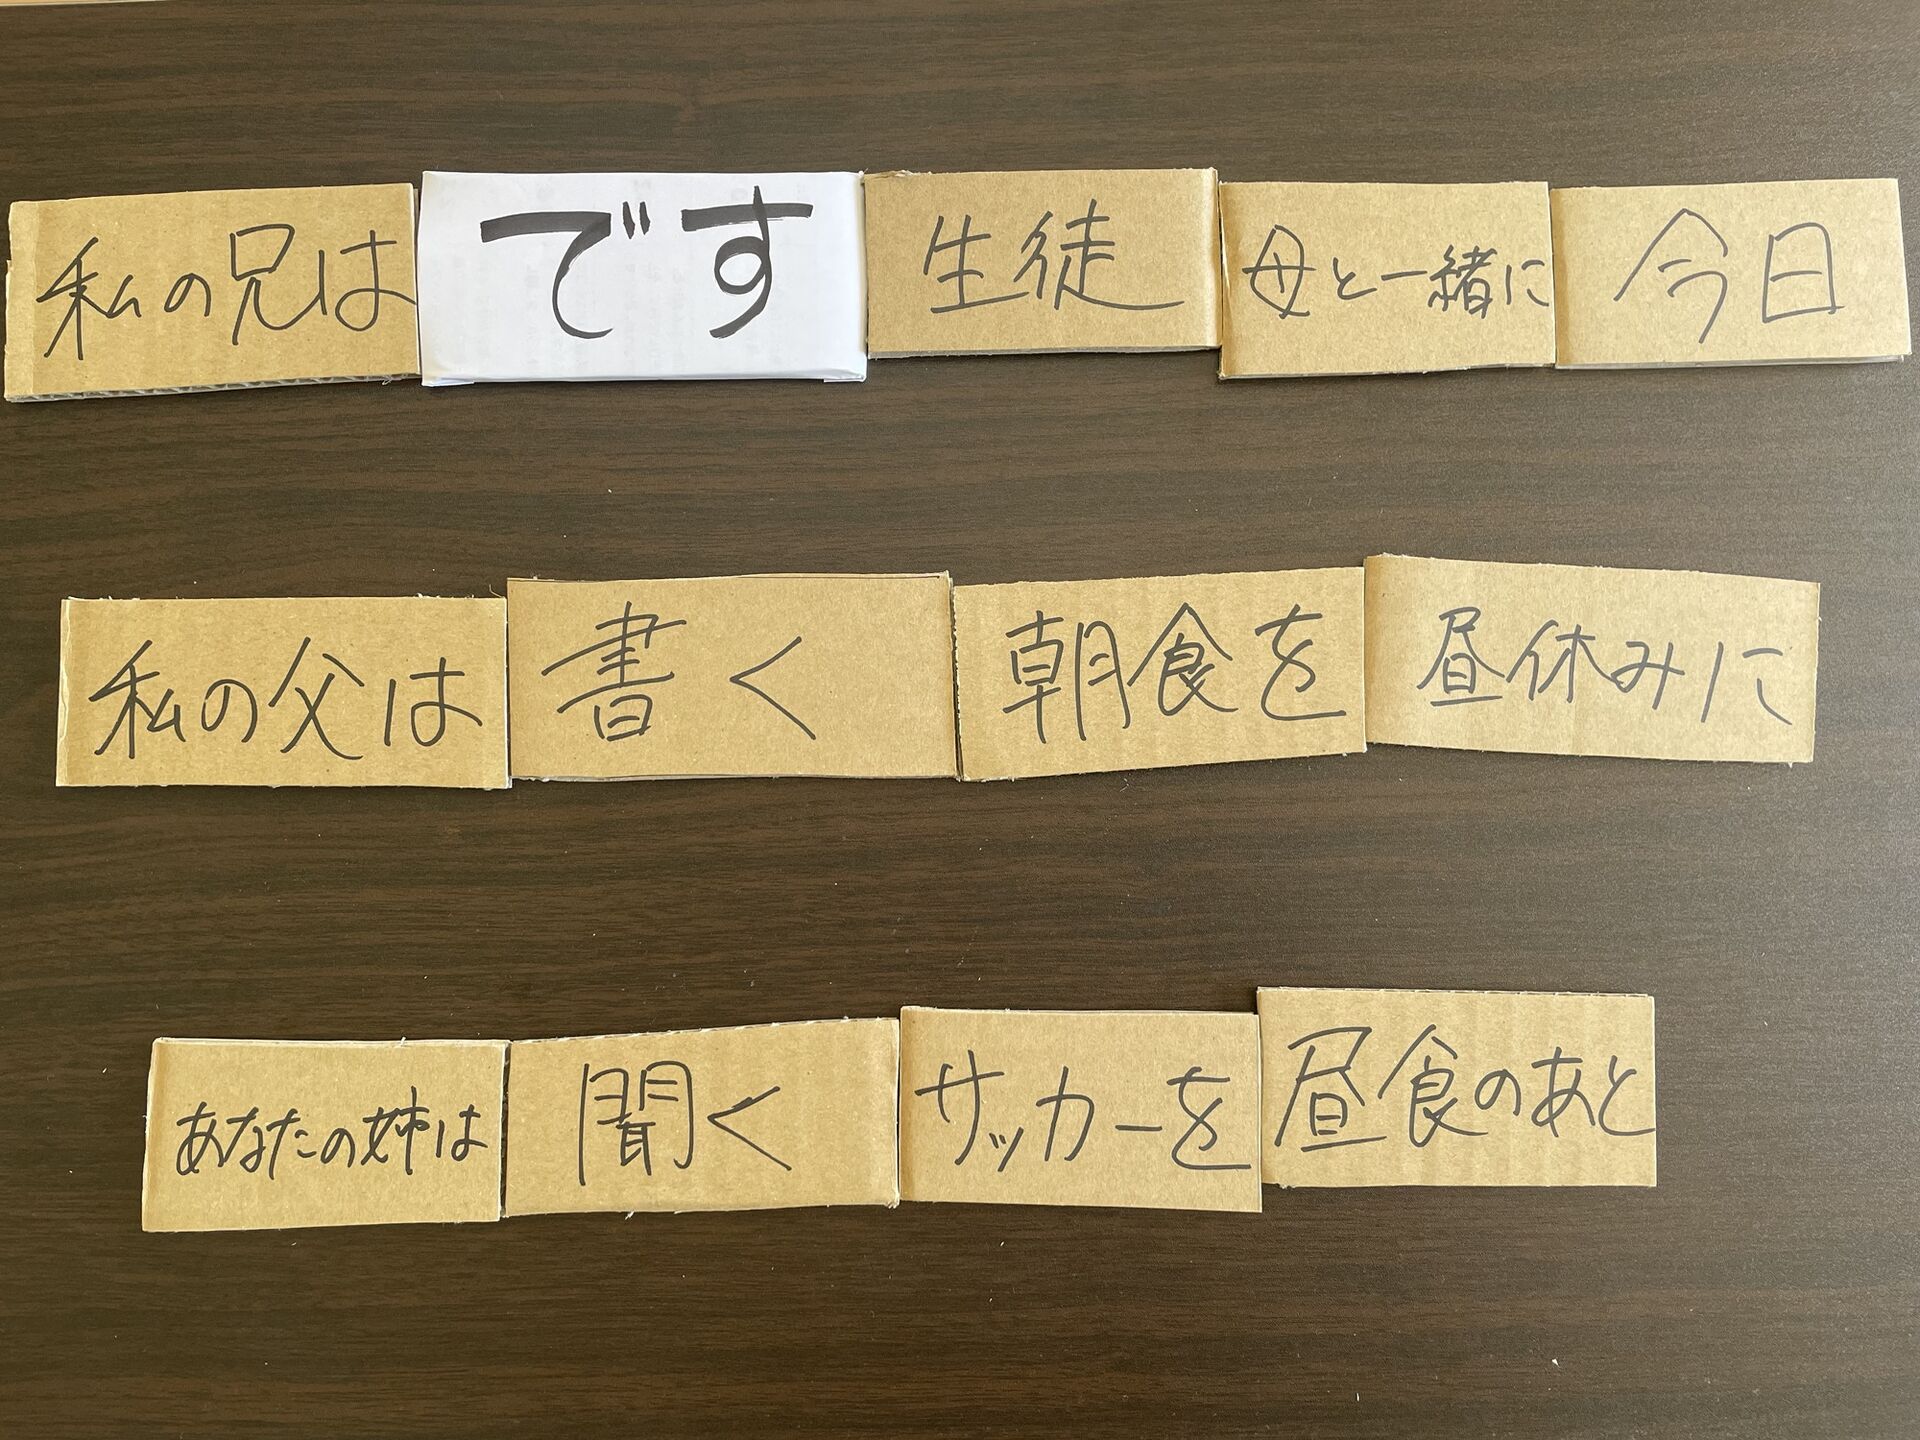 私の兄は です 生徒 母と一緒に 今日
私の父は 書く 朝食を 昼休みに
あなたの姉は 聞く サッカーを 昼食のあと